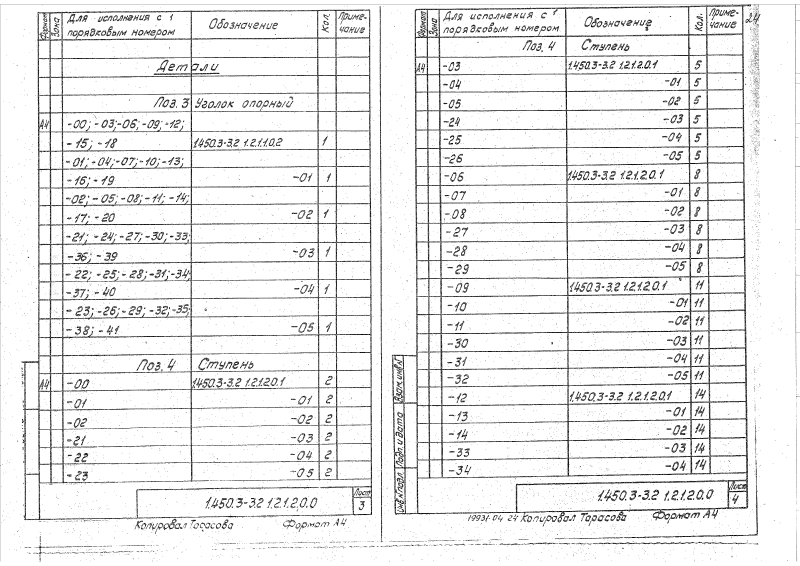 Формат Зона Для исполнения с 1 порядковым номером Обозначение Кол. Приме-чание
Детали
Поз. 3 Уголок опорный
А4 -00; -03; -06; -09; -12;
-15; -18 1.450.3-3.2 1.2.1.1.0.2 1
-01; -04; -07; -10; -13;
-16; -19 -01 1
-02; -05; -08; -11; -14;
-17; -20 -02 1
-21; -24; -27; -30; -33;
-36; -39 -03 1
-22; -25; -28; -31; -34;
-37; -40 -04 1
-23; -26; -29; -32; -35;
-38; -41 -05 1
Поз. 4 Ступень
А4 -00 1.450.3-3.2 1.2.1.2.0.1 2
-01 -01 2
-02 -02 2
-21 -03 2
-22 -04 2
-23 -05 2
1.450.3-3.2 1.2.1.2.0.0 Лист 3
Копировал Тарасова Формат А4
24
Формат Зона Для исполнения с 1 порядковым номером Обозначение Кол. Приме-чание
Поз. 4 Ступень
А4 -03 1.450.3-3.2 1.2.1.2.0.1 5
-04 -01 5
-05 -02 5
-24 -03 5
-25 -04 5
-26 -05 5
-06 1.450.3-3.2 1.2.1.2.0.1 8
-07 -01 8
-08 -02 8
-27 -03 8
-28 -04 8
-29 -05 8
-09 1.450.3-3.2 1.2.1.2.0.1 11
-10 -01 11
-11 -02 11
-30 -03 11
-31 -04 11
-32 -05 11
-12 1.450.3-3.2 1.2.1.2.0.1 14
-13 -01 14
-14 -02 14
-33 -03 14
-34 -04 14
Инв.№подл. Подп. и дата Взам.инв.№
1.450.3-3.2 1.2.1.2.0.0 Лист 4
19931-04 24 Копировал Тарасова Формат А4